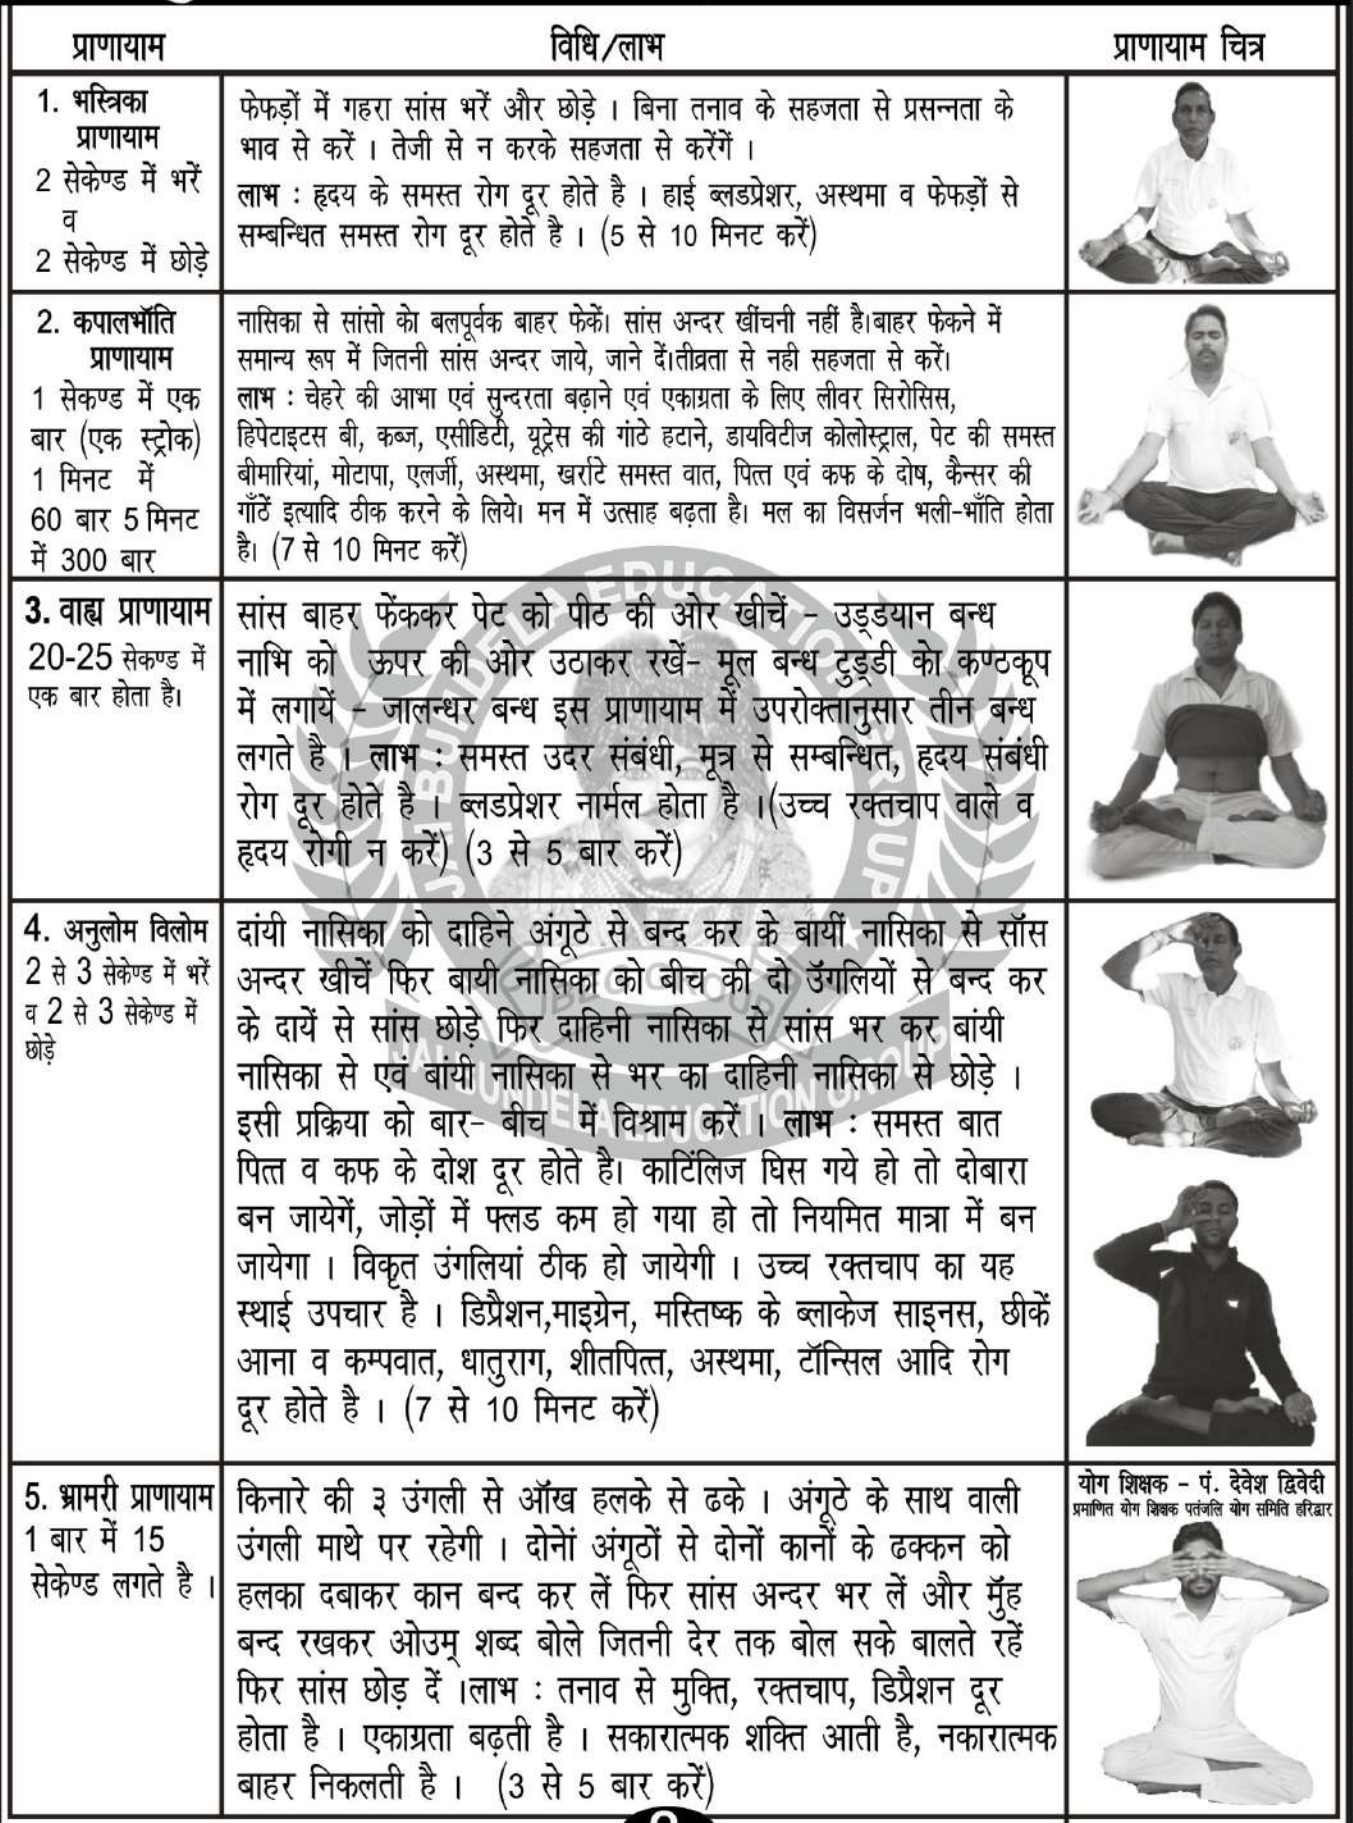 प्राणायाम
विधि/लाभ
प्राणायाम चित्र
1. भस्त्रिका
प्राणायाम
2 सेकेण्ड में भरें
व
2 सेकेण्ड में छोड़े
फेफड़ों में गहरा सांस भरें और छोड़े । बिना तनाव के सहजता से प्रसन्नता के
भाव से करें । तेजी से न करके सहजता से करेंगें ।
लाभ : हृदय के समस्त रोग दूर होते है । हाई ब्लडप्रेशर, अस्थमा व फेफड़ों से
सम्बन्धित समस्त रोग दूर होते है । (5 से 10 मिनट करें)
2. कपालभॉति
प्राणायाम
1 सेकण्ड में एक
बार (एक स्ट्रोक)
1 मिनट में
60 बार 5 मिनट
में 300 बार
नासिका से सांसो को बलपूर्वक बाहर फेकें। सांस अन्दर खींचनी नहीं है।बाहर फेकने में
समान्य रूप में जितनी सांस अन्दर जाये, जाने दें।तीव्रता से नही सहजता से करें।
लाभ : चेहरे की आभा एवं सुन्दरता बढ़ाने एवं एकाग्रता के लिए लीवर सिरोसिस,
हिपेटाइटस बी, कब्ज, एसीडिटी, यूट्रेस की गांठे हटाने, डायविटीज कोलोस्ट्राल, पेट की समस्त
बीमारियां, मोटापा, एलर्जी, अस्थमा, खर्राटे समस्त वात, पित्त एवं कफ के दोष, कैन्सर की
गाँठें इत्यादि ठीक करने के लिये। मन में उत्साह बढ़ता है। मल का विसर्जन भली-भाँति होता
है। (7 से 10 मिनट करें)
3. वाह्य प्राणायाम
20-25 सेकण्ड में
एक बार होता है।
सांस बाहर फेंककर पेट को पीठ की ओर खीचें - उड्डयान बन्ध
नाभि को ऊपर की ओर उठाकर रखें- मूल बन्ध टुड्डी को कण्ठकूप
में लगायें - जालन्धर बन्ध इस प्राणायाम में उपरोक्तानुसार तीन बन्ध
लगते है । लाभ : समस्त उदर संबंधी, मूत्र से सम्बन्धित, हृदय संबंधी
रोग दूर होते है । ब्लडप्रेशर नार्मल होता है ।(उच्च रक्तचाप वाले व
हृदय रोगी न करें) (3 से 5 बार करें)
4. अनुलोम विलोम
2 से 3 सेकेण्ड में भरें
व 2 से 3 सेकेण्ड में
छोड़े
दांयी नासिका को दाहिने अंगूठे से बन्द कर के बायीं नासिका से सॉस
अन्दर खीचें फिर बायी नासिका को बीच की दो उॅगलियों से बन्द कर
के दायें से सांस छोड़े फिर दाहिनी नासिका से सांस भर कर बांयी
नासिका से एवं बांयी नासिका से भर का दाहिनी नासिका से छोड़े ।
इसी प्रक्रिया को बार- बीच में विश्राम करें । लाभ : समस्त बात
पित्त व कफ के दोश दूर होते है। कार्टिलिज घिस गये हो तो दोबारा
बन जायेगें, जोड़ों में फ्लड कम हो गया हो तो नियमित मात्रा में बन
जायेगा । विकृत उंगलियां ठीक हो जायेगी । उच्च रक्तचाप का यह
स्थाई उपचार है । डिप्रैशन,माइग्रेन, मस्तिष्क के ब्लाकेज साइनस, छीकें
आना व कम्पवात, धातुराग, शीतपित्त, अस्थमा, टॉन्सिल आदि रोग
दूर होते है । (7 से 10 मिनट करें)
5. भ्रामरी प्राणायाम
1 बार में 15
सेकेण्ड लगते है ।
किनारे की ३ उंगली से ऑख हलके से ढके । अंगूठे के साथ वाली
उंगली माथे पर रहेगी । दोनों अंगूठों से दोनों कानों के ढक्कन को
हलका दबाकर कान बन्द कर लें फिर सांस अन्दर भर लें और मुॅह
बन्द रखकर ओउम् शब्द बोले जितनी देर तक बोल सके बालते रहें
फिर सांस छोड़ दें ।लाभ : तनाव से मुक्ति, रक्तचाप, डिप्रैशन दूर
होता है । एकाग्रता बढ़ती है । सकारात्मक शक्ति आती है, नकारात्मक
बाहर निकलती है । (3 से 5 बार करें)
योग शिक्षक - पं. देवेश द्विवेदी
प्रमाणित योग शिक्षक पतंजलि योग समिति हरिद्वार
JAI BUNDELA EDUCATION GROUP
JAI BUNDELA EDUCATION GROUP